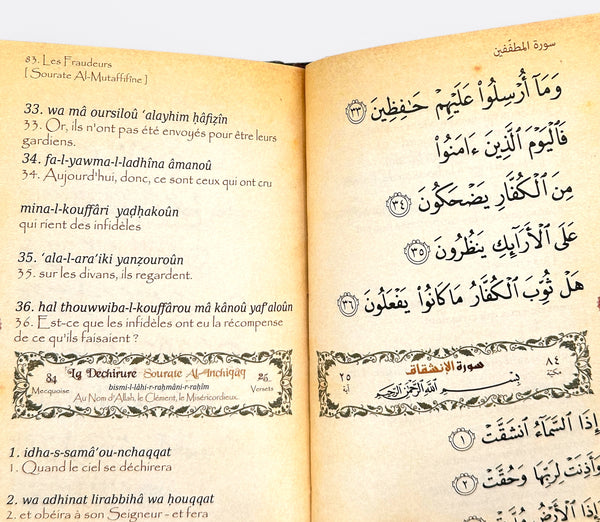 83. Les Fraudeurs
[ Sourate Al-Mutaffifîne ]
33. wa mâ oursiloû ‘alayhim ḥâfiẓîn
33. Or, ils n'ont pas été envoyés pour être leurs
gardiens.
34. fa-l-yawma-l-ladhîna âmanoû
34. Aujourd'hui, donc, ce sont ceux qui ont cru
mina-l-kouffâri yaḍhakoûn
qui rient des infidèles
35. ‘ala-l-ara’iki yanẓouroûn
35. sur les divans, ils regardent.
36. hal thouwwiba-l-kouffârou mâ kânoû yaf‘aloûn
36. Est-ce que les infidèles ont eu la récompense
de ce qu'ils faisaient ?
84 La Dechirure Sourate Al-Inchiqâq 25
Mecquoise bismi-l-lâhi-r-raḥmâni-r-raḥîm Versets
Au Nom d'Allah, le Clément, le Miséricordieux.
1. idha-s-samâ’ou-nchaqqat
1. Quand le ciel se déchirera
2. wa adhinat lirabbihâ wa ḥouqqat
2. et obéira à son Seigneur - et fera
سورة المطففين
وَمَآ أُرْسِلُوا۟ عَلَيْهِمْ حَـٰفِظِينَ ٣٣
فَٱلْيَوْمَ ٱلَّذِينَ ءَامَنُوا۟
مِنَ ٱلْكُفَّارِ يَضْحَكُونَ ٣٤
عَلَى ٱلْأَرَآئِكِ يَنظُرُونَ ٣٥
هَلْ ثُوِّبَ ٱلْكُفَّارُ مَا كَانُوا۟ يَفْعَلُونَ ٣٦
٨٤ مكية سورة الإنشقاق ٢٥ آية
بِسْمِ ٱللَّهِ ٱلرَّحْمَـٰنِ ٱلرَّحِيمِ
إِذَا ٱلسَّمَآءُ ٱنشَقَّتْ ١
وَأَذِنَتْ لِرَبِّهَا وَحُقَّتْ ٢
وَإِذَا ٱلْأَرْضُ